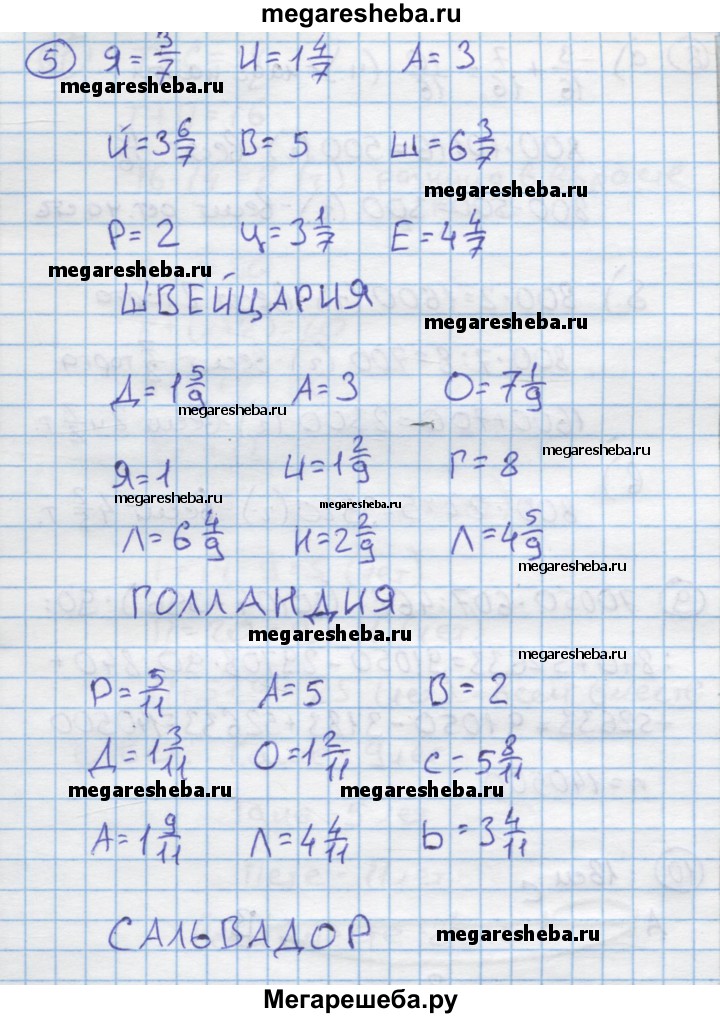 megaresheba.ru
5 Я = 3/7 И = 1 4/7 А = 3
megaresheba.ru megaresheba.ru
Й = 3 6/7 В = 5 Ш = 6 3/7
megaresheba.ru
Р = 2 Ц = 3 1/7 Е = 4 4/7
megaresheba.ru
ШВЕЙЦАРИЯ
megaresheba.ru
Д = 1 5/9 А = 3 О = 7 1/9
megaresheba.ru
Я = 1 И = 1 2/9 Г = 8
megaresheba.ru
megaresheba.ru
megaresheba.ru
Л = 6 4/9 Н = 2 2/9 Л = 4 5/9
megaresheba.ru
ГОЛЛАНДИЯ
megaresheba.ru
megaresheba.ru
Р = 5/11 А = 5 В = 2
Д = 1 3/11 О = 1 2/11 С = 5 8/11
megaresheba.ru megaresheba.ru
А = 1 9/11 Л = 4 4/11 Ь = 3 4/11
САЛЬВАДОР
megaresheba.ru
Мегарешеба.ру